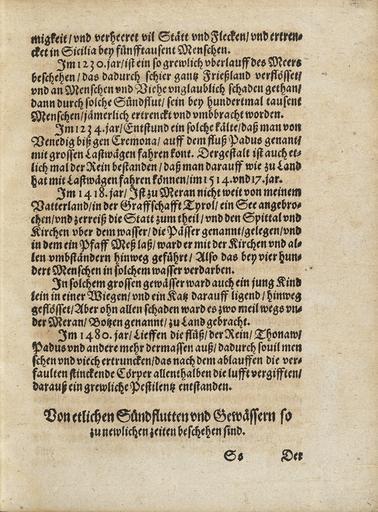 migkeit/ vnd verheeret vil Stätt vnd Flecken/ vnd ertren-
cket in Sicilia bey fünfftausent Menschen.
Im 1230. jar/ ist ein so grewlich vberlauff des Meers
beschehen/ das dadurch schier gantz Frießland verflösset/
vnd an Menschen vnd Viehe vnglaublich schaden gethan/
dann durch solche Sündflut/ sein bey hundertmal tausent
Menschen/ jämerlich ertrenckt vnd vmbbracht worden.
Im 1234. jar/ Entstund ein solche kälte/ daß man von
Venedig biß gen Cremona/ auff dem fluß Padus genant/
mit grossen Lastwägen fahren kont. Dergestalt ist auch et-
lich mal der Rein bestanden/ daß man darauff wie zu Land
hat mit Lastwägen fahren können/ im 1514. vnd 17. jar.
Im 1418. jar/ Ist zu Meran nicht weit von meinem
Vatterland/ in der Graffschafft Tyrol/ ein See angebro-
chen/ vnd zerreiß die Statt zum theil/ vnd den Spittal vnd
Kirchen vber dem wasser/ die Pässer genant/ gelegen/ vnd
in dem ein Pfaff Meß laß/ ward er mit der Kirchen vnd al-
len vmbständern hinweg geführt/ Also das bey vier hun-
dert Menschen in solchem wasser verdarben.
In solchem grossen gewässer ward auch ein jung Kind
lein in einer Wiegen/ vnd ein Katz darauff ligend/ hinweg
geflösset/ Aber ohn allen schaden ward es zwo meil wegs vn-
der Meran/ Botzen genannt/ zu Land gebracht.
Im 1480. jar/ Lieffen die flüß/ der Rein/ Thonaw/
Padus vnd andere mehr dermassen auß/ dadurch souil men
schen vnd viech ertruncken/ das nach dem ablauffen die ver-
faulten stinckende Cörper allenthalben die lufft vergifften/
darauß ein grewliche Pestilentz entstanden.
Von etlichen Sündflutten vnd Gewässern so
zu newlichen zeiten beschehen sind.
So Der